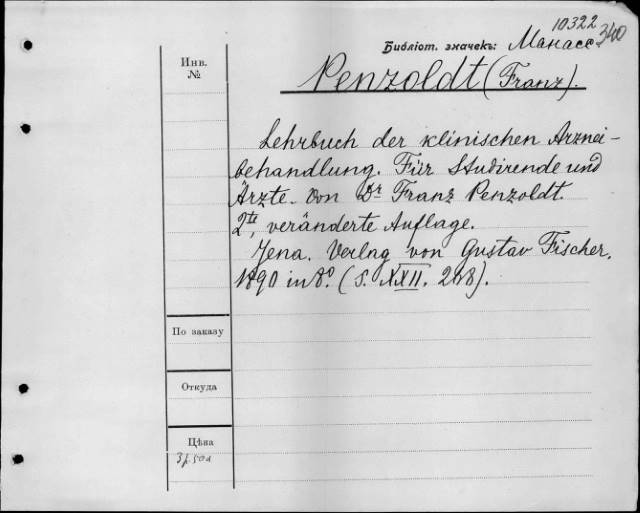 10322
340
Библіот. значекъ: Манасс
Инв.
№
Penzoldt (Franz).
Lehrbuch der klinischen Arznei-
behandlung. Für Studirende und
Ärzte. von Dr Franz Penzoldt.
2te, veränderte Auflage.
Jena. Verlag von Gustav Fischer.
1890 in 8°. (S. XXII. 268).
По заказу
Откуда
Цѣна